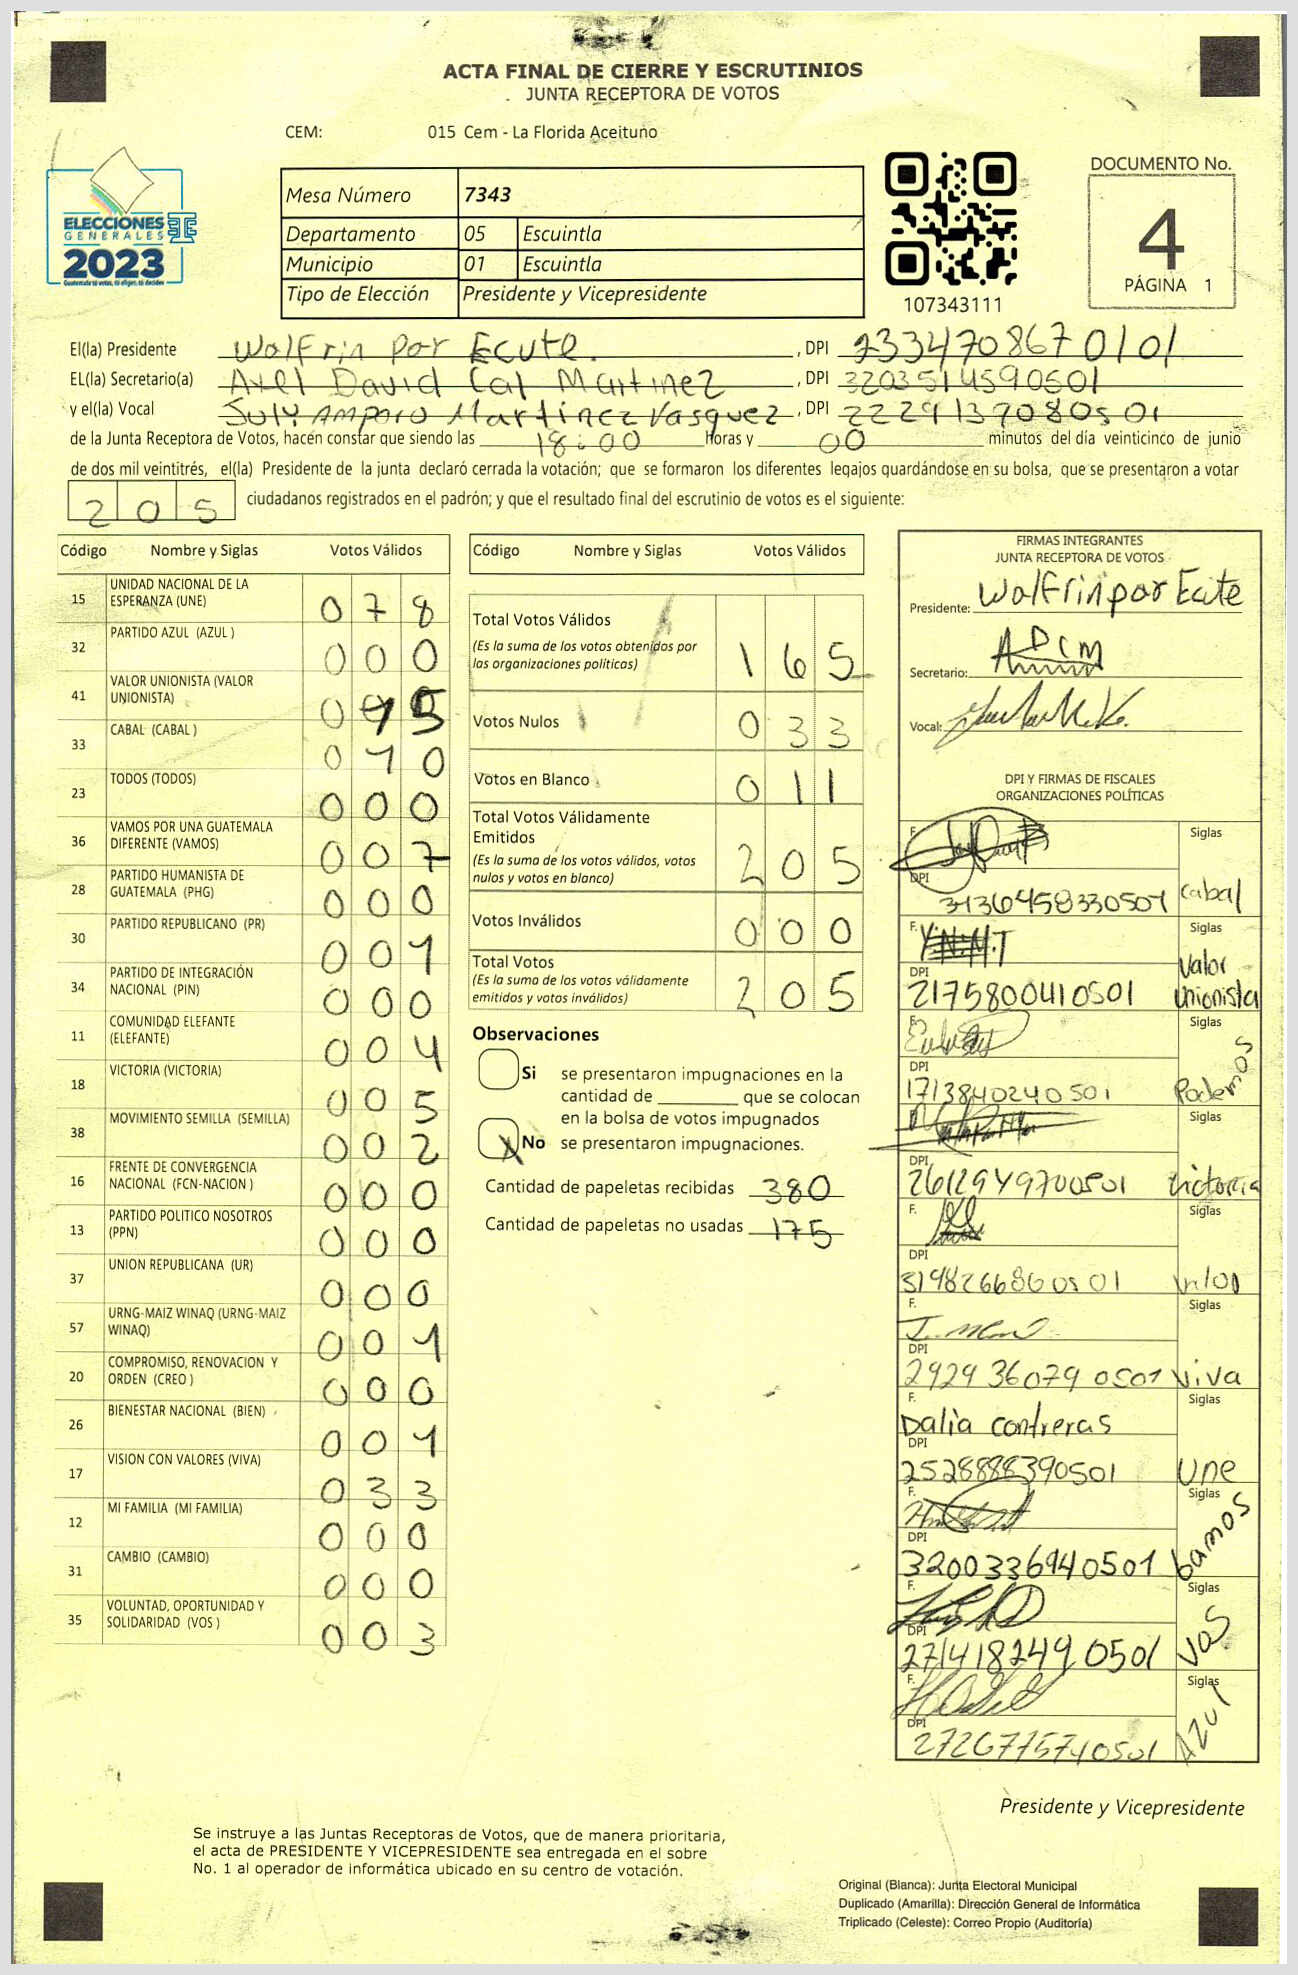 ACTA FINAL DE CIERRE Y ESCRUTINIOS
JUNTA RECEPTORA DE VOTOS
CEM: 015 Cem - La Florida Aceituno
ELECCIONES
GENERALES
2023
Guatemala tú votas, tú eliges, tú decides
Mesa Número 7343
Departamento 05 Escuintla
Municipio 01 Escuintla
Tipo de Elección Presidente y Vicepresidente
107343111
DOCUMENTO No.
4
PÁGINA 1
El(la) Presidente Wolfrin par Ecute. , DPI 2334708670101
EL(la) Secretario(a) Axel David Cal Martinez , DPI 3203514590501
y el(la) Vocal July Amparo Martinez Vasquez , DPI 2229137080501
de la Junta Receptora de Votos, hacen constar que siendo las 18:00 horas y 00 minutos del día veinticinco de junio
de dos mil veintitrés, el(la) Presidente de la junta declaró cerrada la votación; que se formaron los diferentes legajos guardándose en su bolsa, que se presentaron a votar
205 ciudadanos registrados en el padrón; y que el resultado final del escrutinio de votos es el siguiente:
Código Nombre y Siglas Votos Válidos
15 UNIDAD NACIONAL DE LA ESPERANZA (UNE) 078
32 PARTIDO AZUL (AZUL ) 000
41 VALOR UNIONISTA (VALOR UNIONISTA) 0
33 CABAL (CABAL ) 010
23 TODOS (TODOS) 000
36 VAMOS POR UNA GUATEMALA DIFERENTE (VAMOS) 007
28 PARTIDO HUMANISTA DE GUATEMALA (PHG) 000
30 PARTIDO REPUBLICANO (PR) 001
34 PARTIDO DE INTEGRACIÓN NACIONAL (PIN) 000
11 COMUNIDAD ELEFANTE (ELEFANTE) 004
18 VICTORIA (VICTORIA) 005
38 MOVIMIENTO SEMILLA (SEMILLA) 002
16 FRENTE DE CONVERGENCIA NACIONAL (FCN-NACION ) 000
13 PARTIDO POLITICO NOSOTROS (PPN) 000
37 UNION REPUBLICANA (UR) 000
57 URNG-MAIZ WINAQ (URNG-MAIZ WINAQ) 001
20 COMPROMISO, RENOVACION Y ORDEN (CREO ) 000
26 BIENESTAR NACIONAL (BIEN) 001
17 VISION CON VALORES (VIVA) 033
12 MI FAMILIA (MI FAMILIA) 000
31 CAMBIO (CAMBIO) 000
35 VOLUNTAD, OPORTUNIDAD Y SOLIDARIDAD (VOS ) 003
Código Nombre y Siglas Votos Válidos
Total Votos Válidos 165
(Es la suma de los votos obtenidos por
las organizaciones políticas)
Votos Nulos 033
Votos en Blanco 011
Total Votos Válidamente
Emitidos 205
(Es la suma de los votos válidos, votos
nulos y votos en blanco)
Votos Inválidos 000
Total Votos 205
(Es la suma de los votos válidamente
emitidos y votos inválidos)
Observaciones
Si se presentaron impugnaciones en la
cantidad de ________ que se colocan
en la bolsa de votos impugnados
X No se presentaron impugnaciones.
Cantidad de papeletas recibidas 380
Cantidad de papeletas no usadas 175
FIRMAS INTEGRANTES
JUNTA RECEPTORA DE VOTOS
Presidente: Wolfrin par Ecute
Secretario: ADCM
Vocal:
DPI Y FIRMAS DE FISCALES
ORGANIZACIONES POLÍTICAS
F. Siglas
DPI 3136458330501 cabal
F. Y.N.M.T Siglas
DPI 2175800410501 Valor Unionista
F. Siglas
DPI 1713840240501 Podemos
Siglas
DPI 2612949700501 Victoria
F. Siglas
DPI 3198266860501
F. Siglas
DPI 2924360790501 Viva
F. Dalia contreras Siglas
DPI 2528888390501 Une
F. Siglas
DPI 3200336940501 bamos
F. Siglas
DPI 2714182490501 VOS
F. Siglas
DPI 2726775740501 Azul
Presidente y Vicepresidente
Se instruye a las Juntas Receptoras de Votos, que de manera prioritaria,
el acta de PRESIDENTE Y VICEPRESIDENTE sea entregada en el sobre
No. 1 al operador de informática ubicado en su centro de votación.
Original (Blanca): Junta Electoral Municipal
Duplicado (Amarilla): Dirección General de Informática
Triplicado (Celeste): Correo Propio (Auditoría)